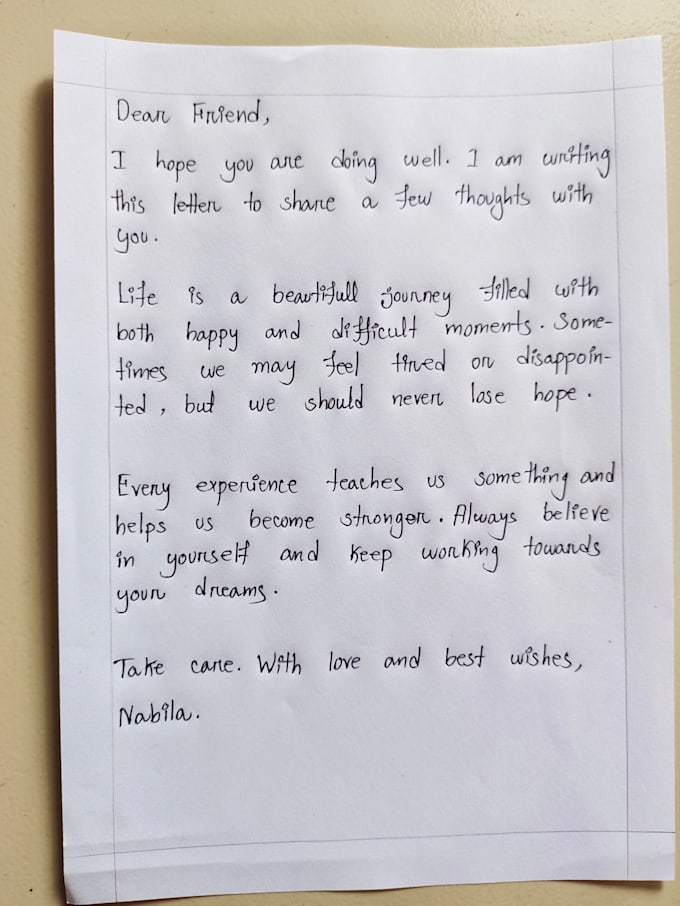 Dear Friend,
I hope you are doing well. I am writing
this letter to share a few thoughts with
you.
Life is a beautifull journey filled with
both happy and difficult moments. Some-
times we may feel tired or disappoin-
ted, but we should never lose hope.
Every experience teaches us something and
helps us become stronger. Always believe
in yourself and keep working towards
your dreams.
Take care. With love and best wishes,
Nabila.